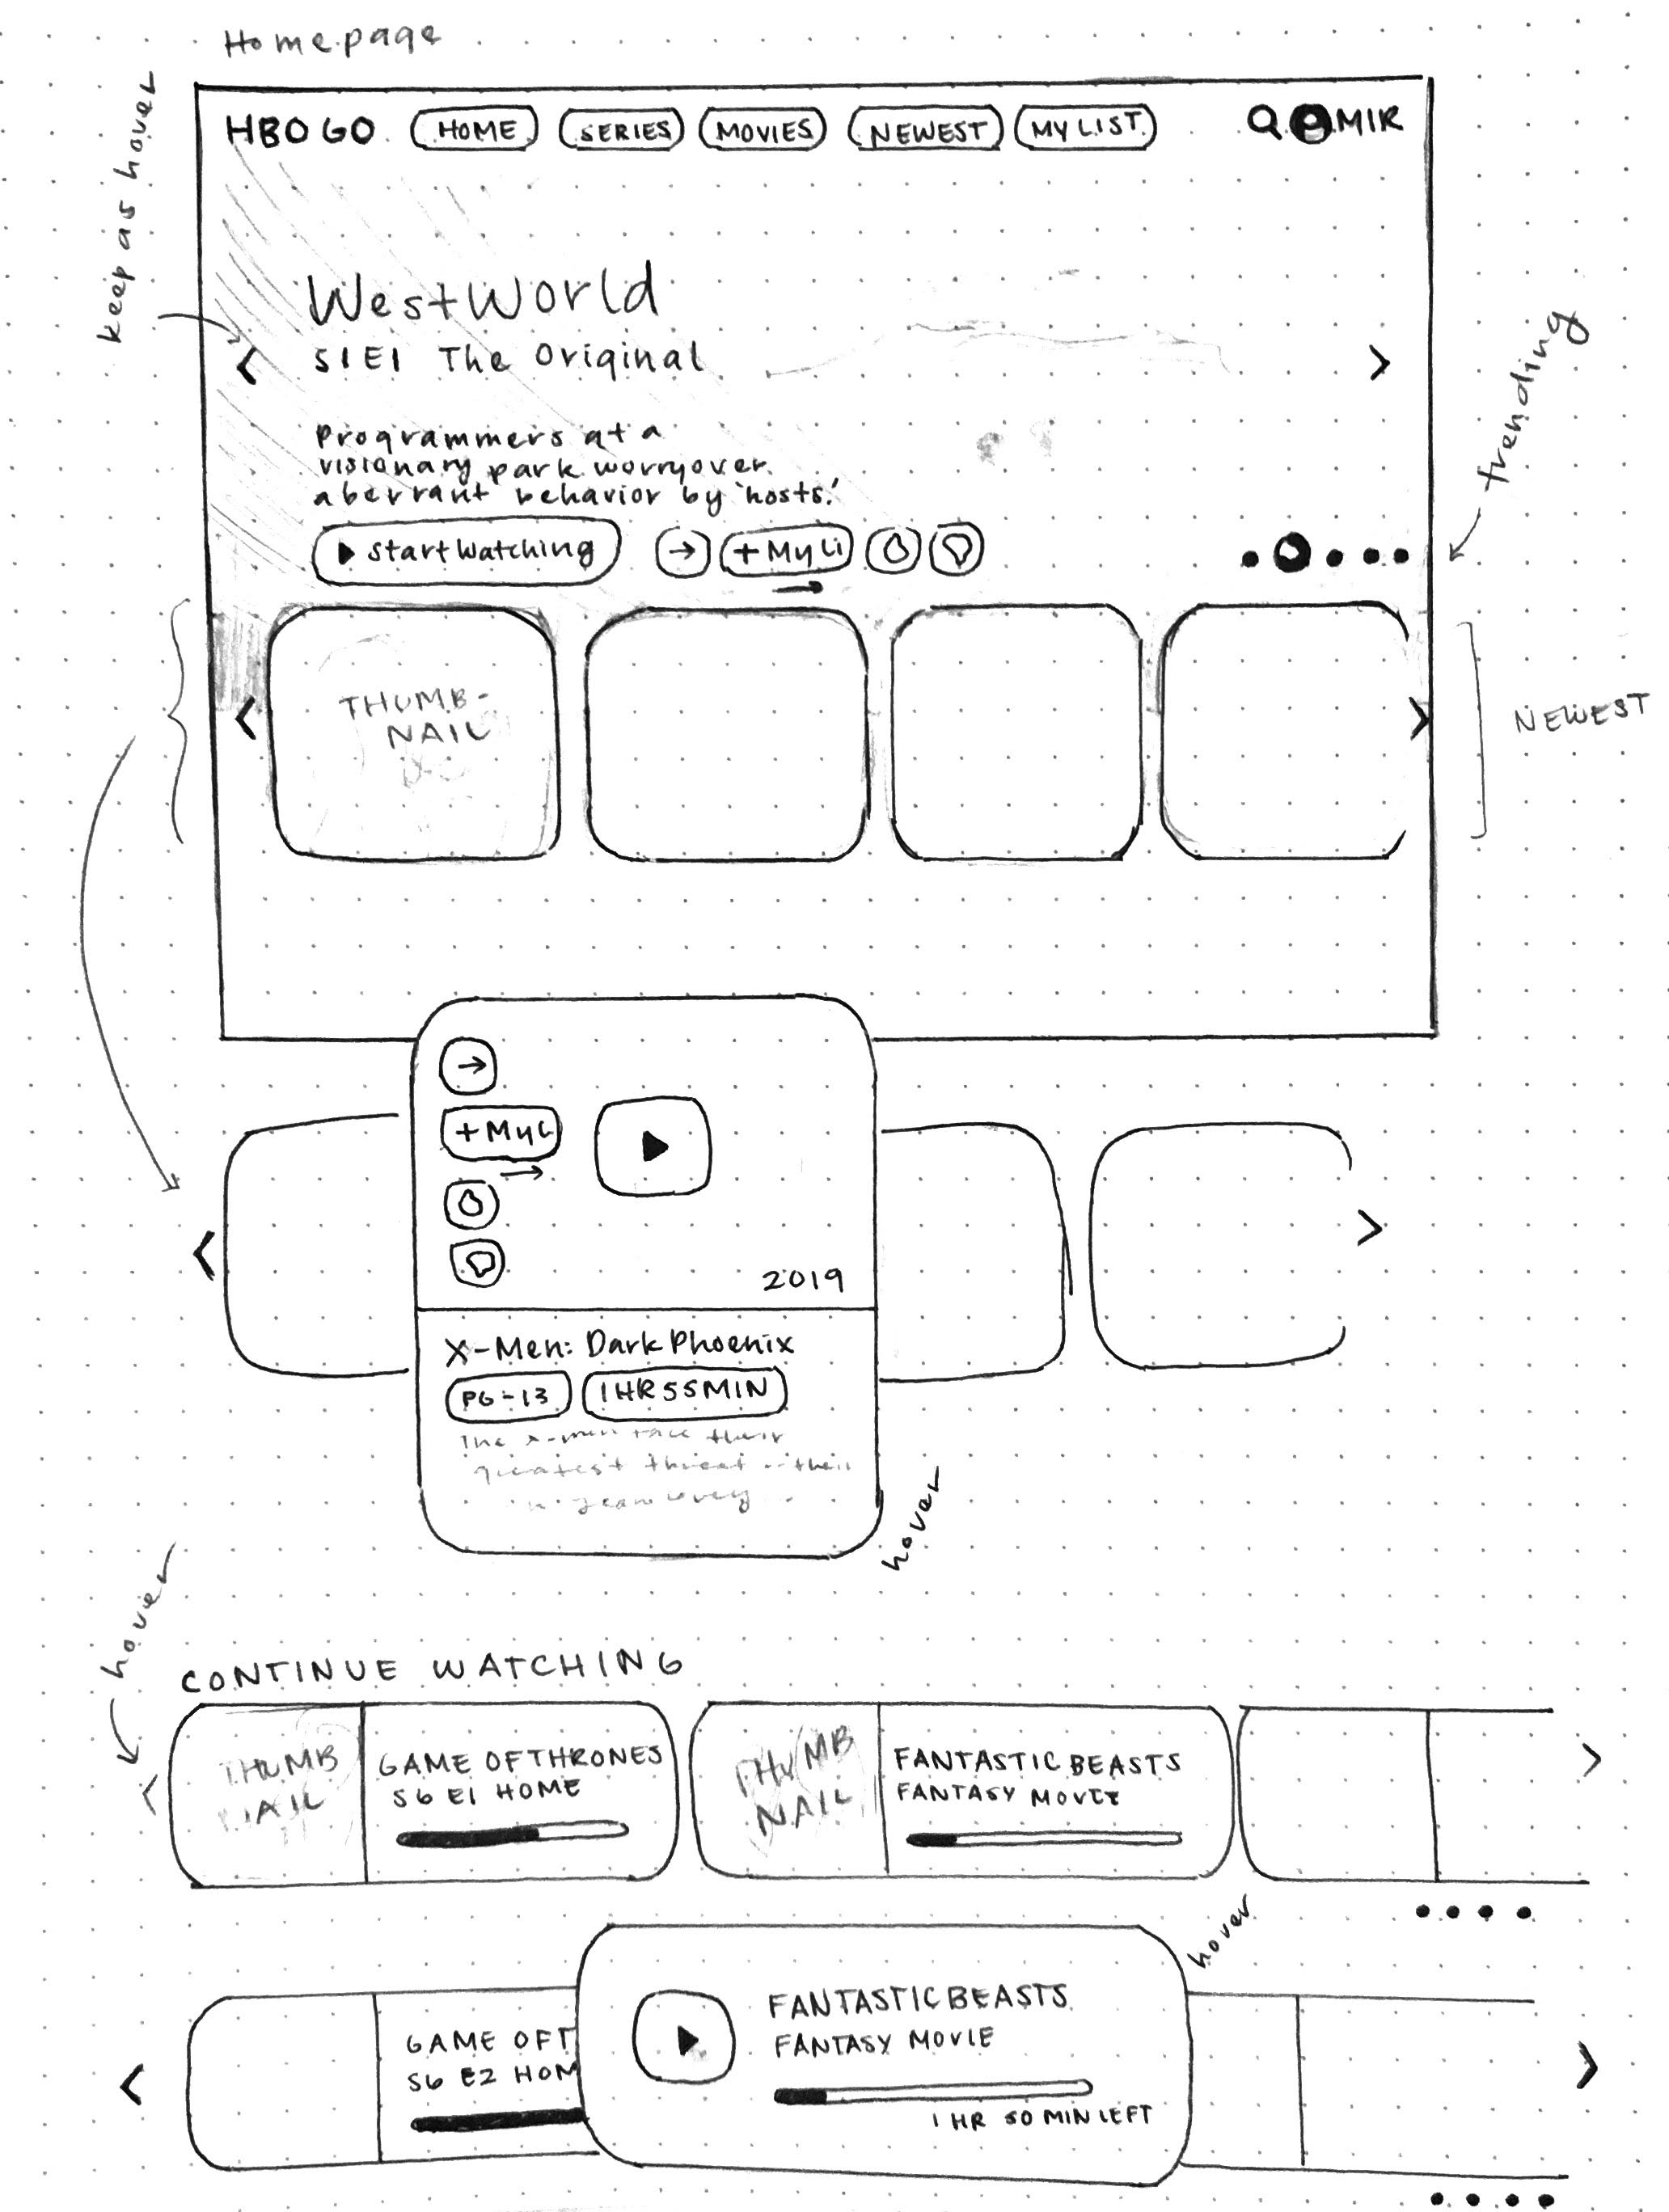 Homepage
keep as hover
HBO GO HOME SERIES MOVIES NEWEST MY LIST MIR
WestWorld
S1E1 The Original
Programmers at a
visionary park worry over
aberrant behavior by 'hosts.'
Start Watching + My Li
trending
THUMB-
NAIL
NEWEST
+ My L
2019
X-Men: Dark Phoenix
PG-13 1HR55MIN
The x-men face their
greatest threat
hover
hover
CONTINUE WATCHING
THUMB
NAIL
GAME OF THRONES
S6 E1 HOME
THUMB
NAIL
FANTASTIC BEASTS
FANTASY MOVIE
hover
GAME OF T
S6 E2 HOM
FANTASTIC BEASTS
FANTASY MOVIE
1 HR 50 MIN LEFT